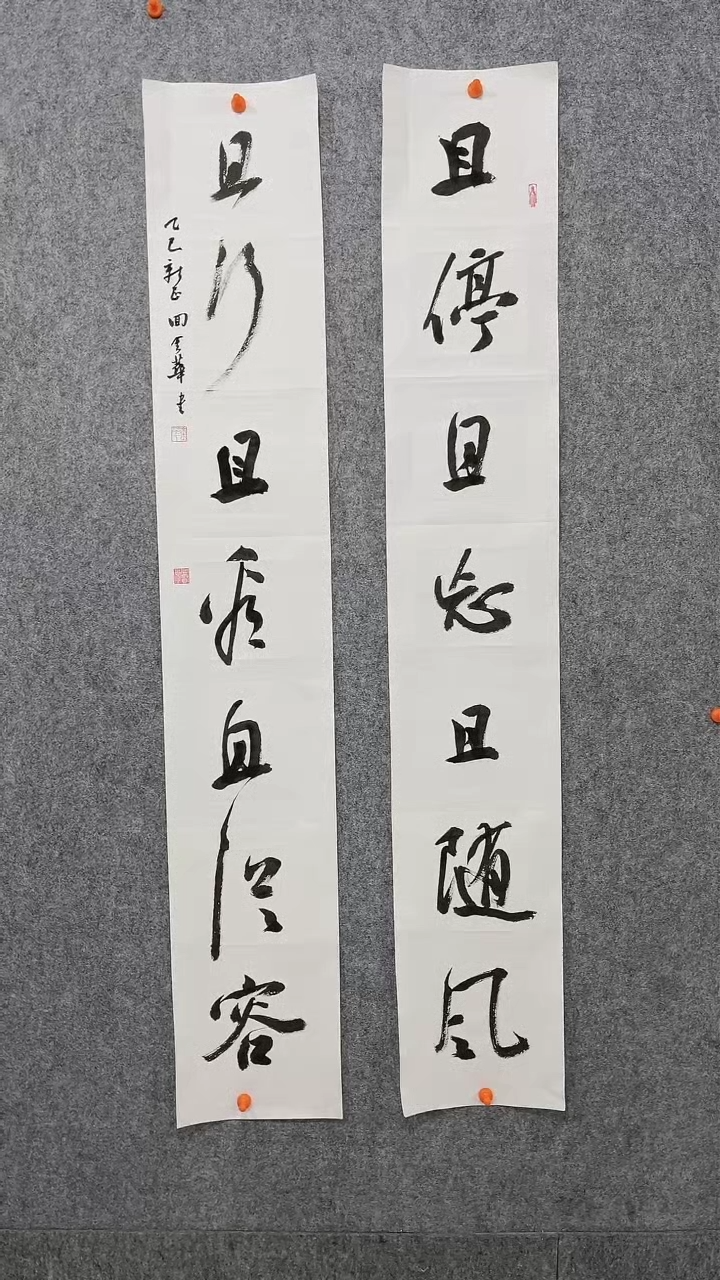 且停且忘且随风
且行且看且從容
乙巳新正田華書